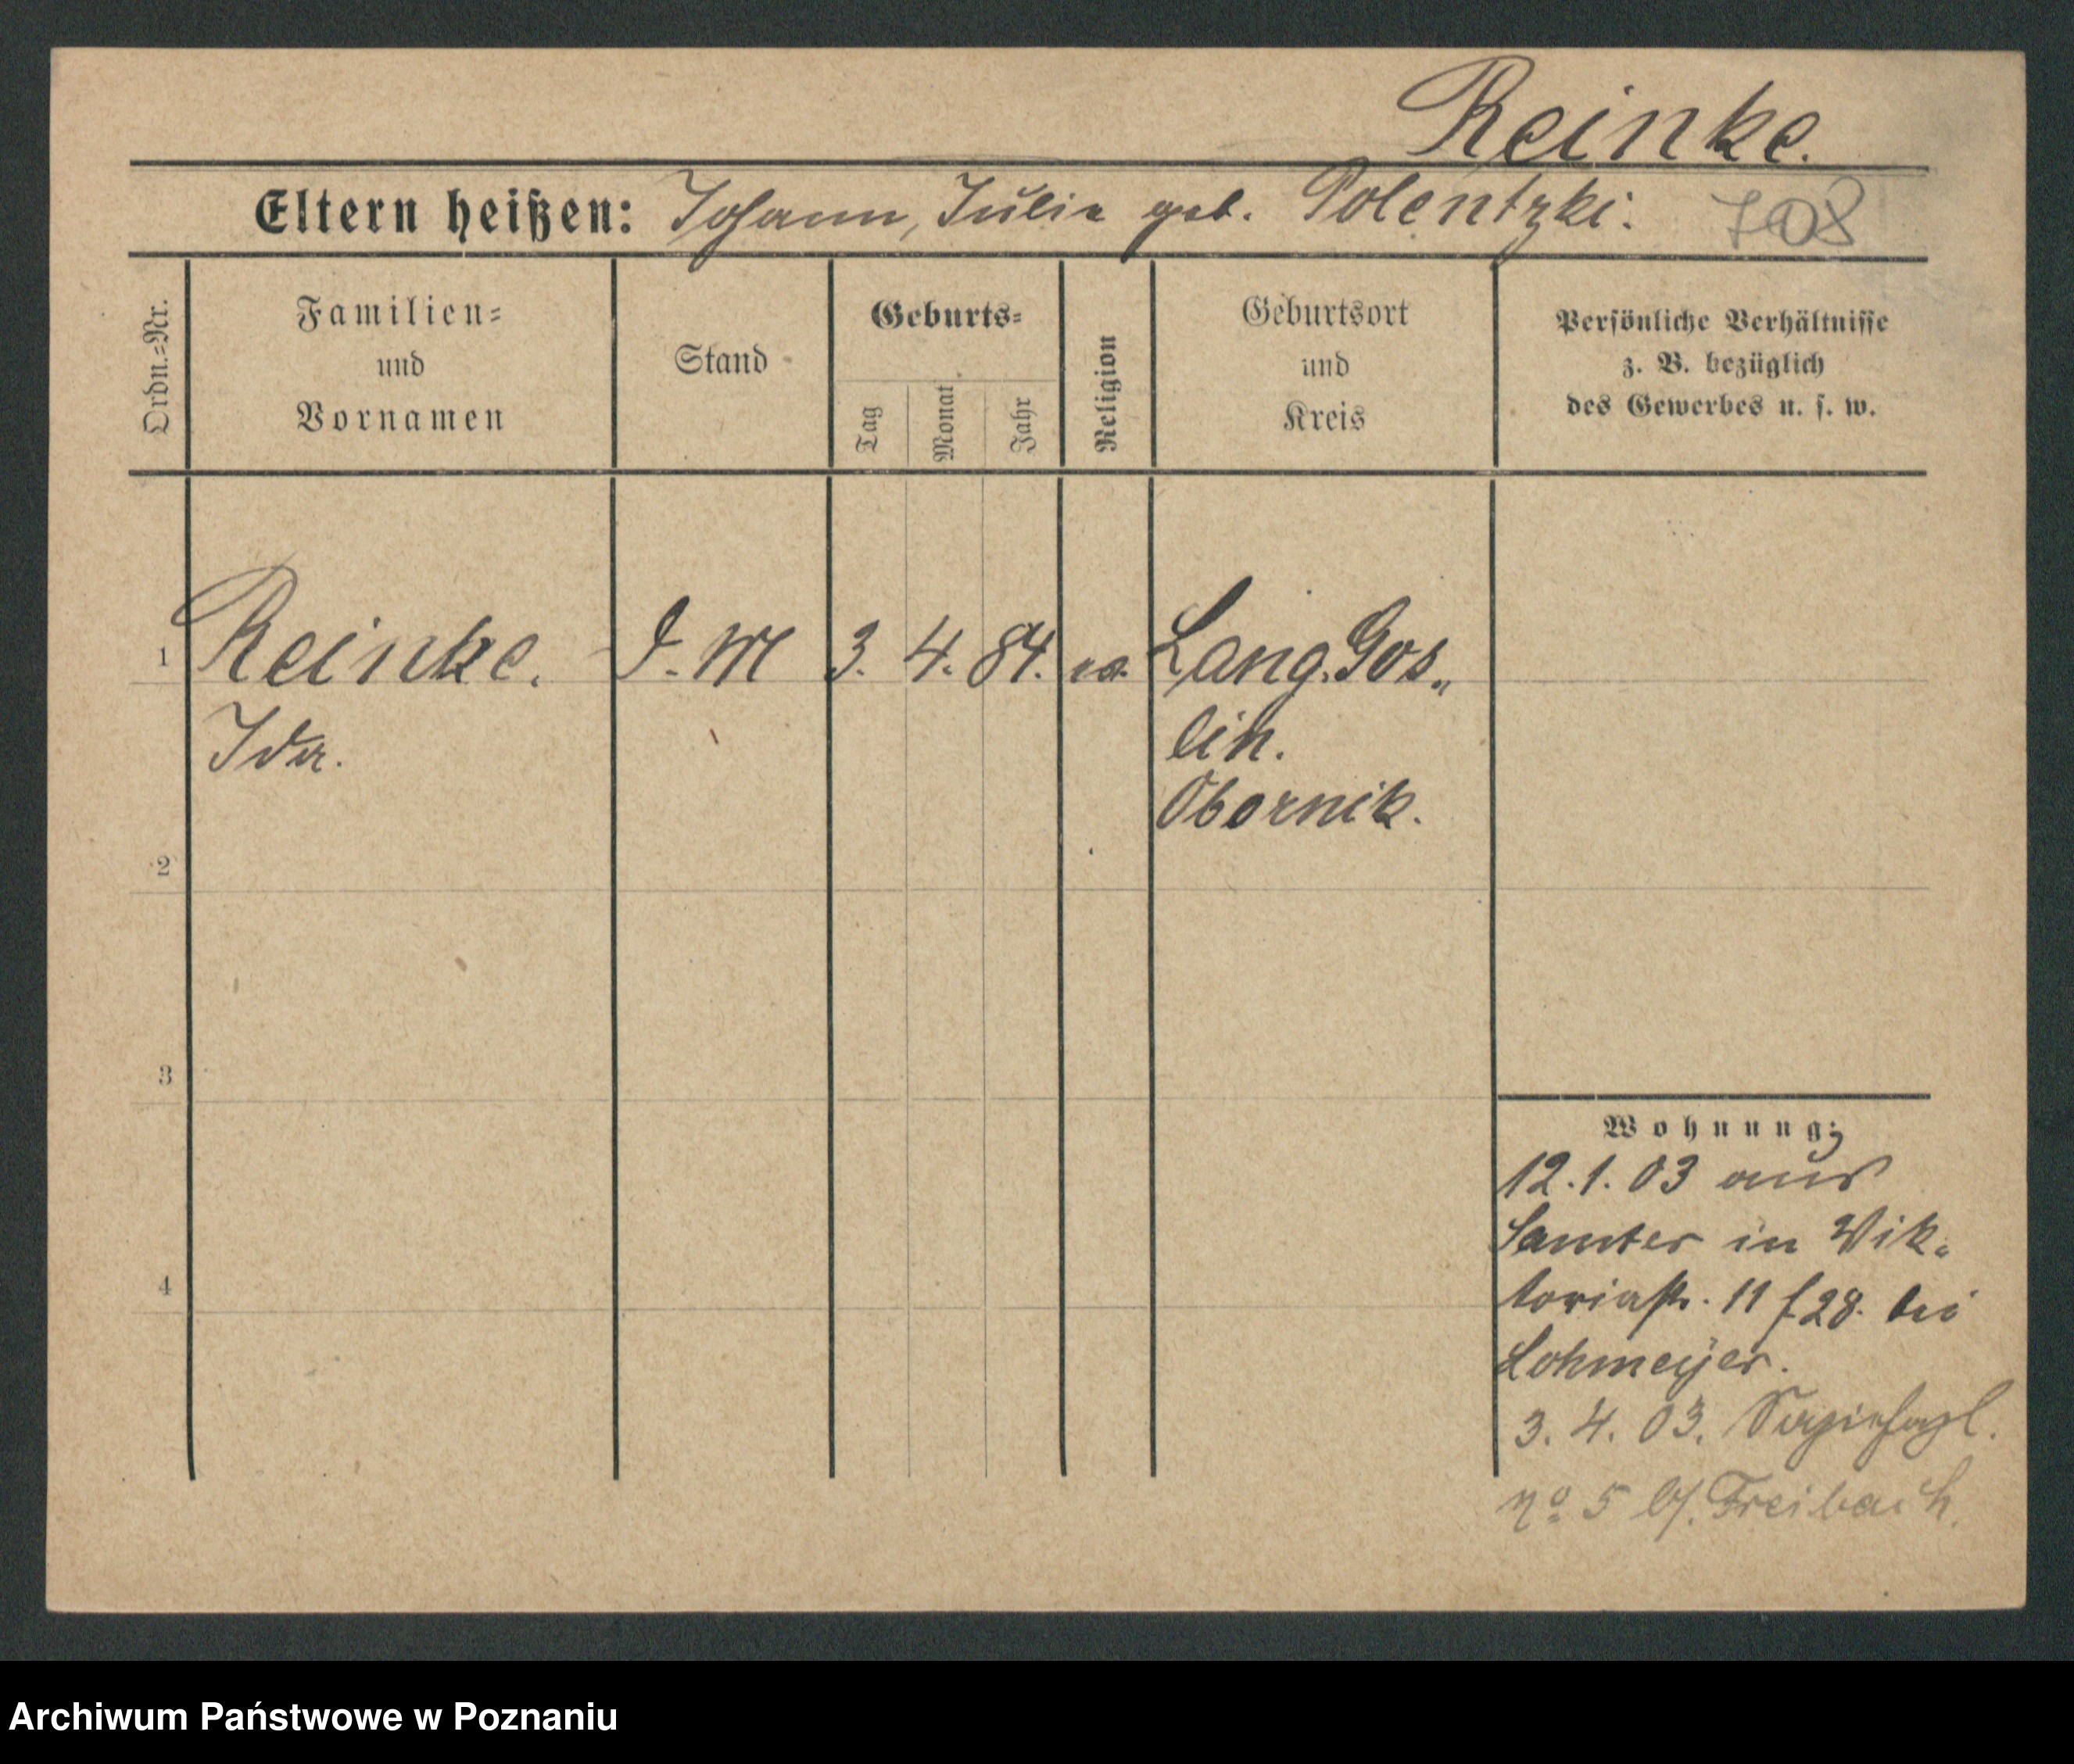 Reinke.
Eltern heißen: Johann, Julia geb. Polentzki. 708
Ordn.=Nr.
Familien=
und
Vornamen
Stand
Geburts=
Tag
Monat
Jahr
Religion
Geburtsort
und
Kreis
Persönliche Verhältnisse
z. B. bezüglich
des Gewerbes u. s. w.
1 Reinke. D. M 3. 4. 84. ev. Lang. Gos„
Ida. lin.
Obornik.
2
3
4
Wohnung:
12.1.03 aus
Samter in Vik=
toriastr. 11 f 28. bei
Lohmeyer.
3. 4. 03.
No 5 b/. Freibach.
Archiwum Państwowe w Poznaniu